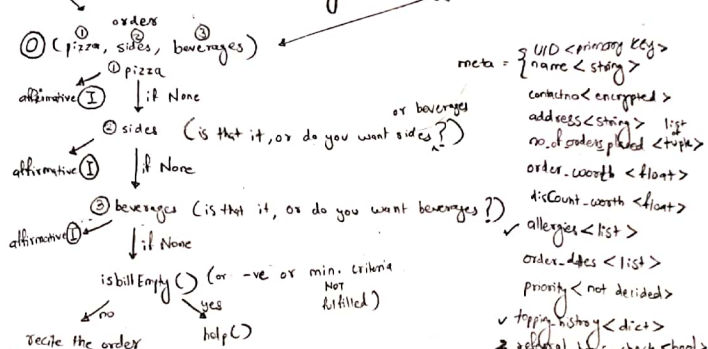 orders
① ② ③
O (pizza, sides, beverages)
① pizza
affirmative I if None
or beverages
② sides (is that it, or do you want sides ?)
affirmative I if None
③ beverages (is that it, or do you want beverages?)
affirmative I if None
isbillEmpty() (or -ve or min. criteria
NOT
fulfilled)
no yes
recite the order help()
meta = { UID <primary key>
name < string >
contactno < encrypted >
address <string>
list
of
no_of_orders placed <tuple>
order_worth <float>
disCount_worth <float>
✓ allergies <list>
order_dates <list>
priority < not decided >
✓ topping_histroy <dict>